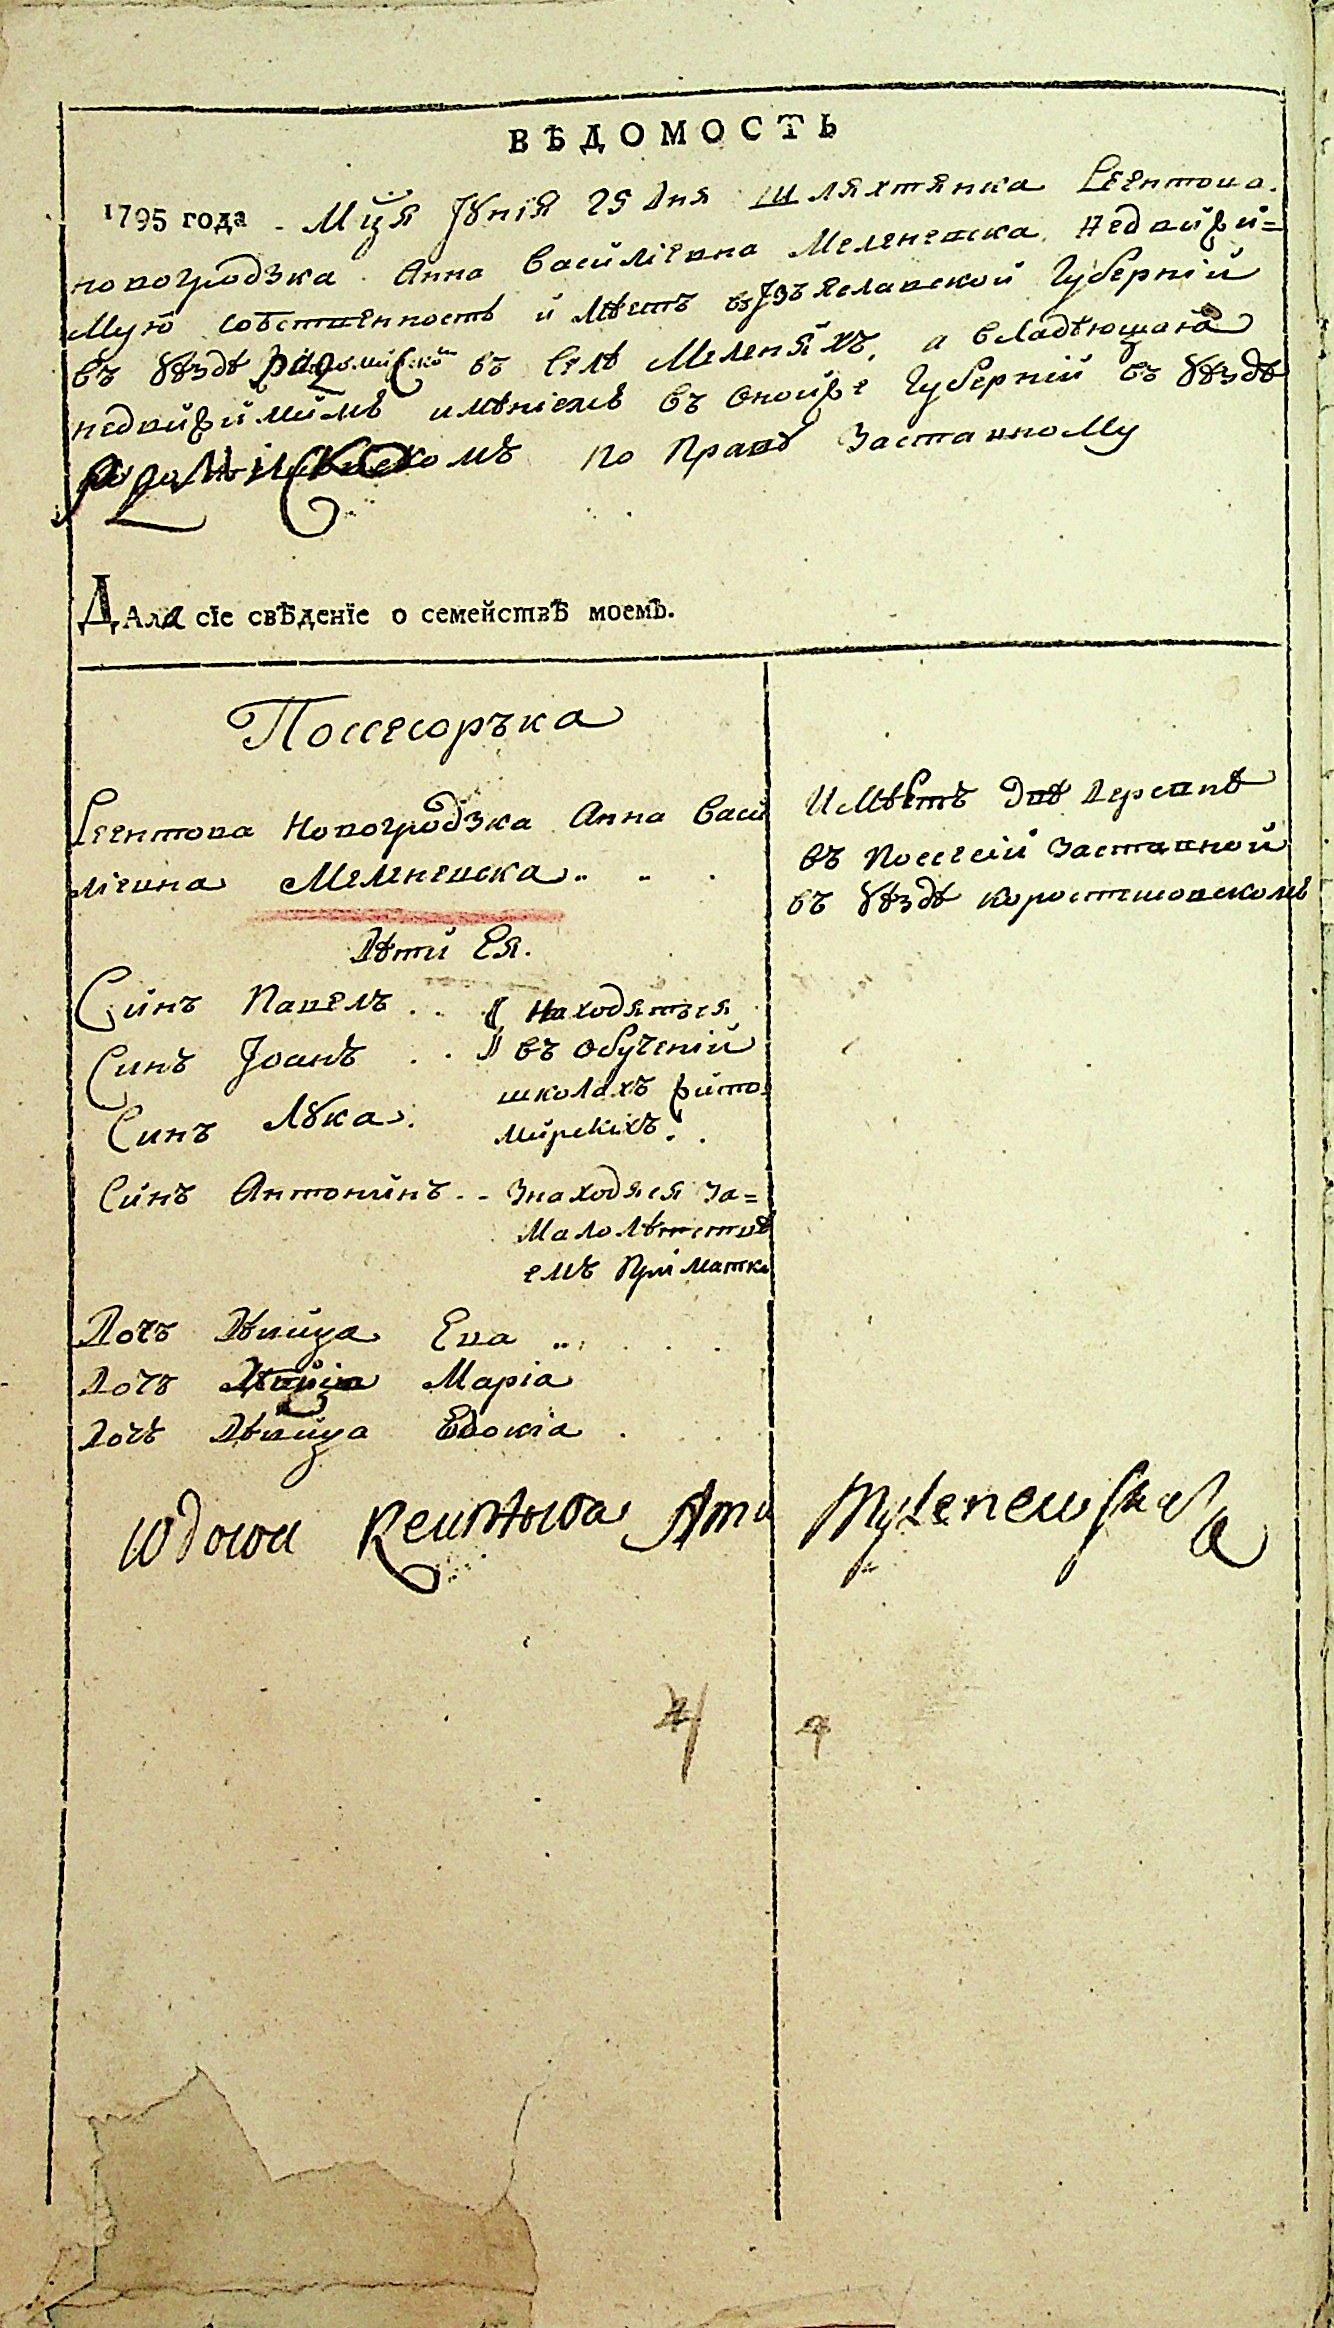 ВѢДОМОСТЬ
1795 года . Мця Јунїя 25 дня Шляхтянка Регентова
новогродзка Анна Василіевна Меленевска Недвижи=
мую собственность имѣетъ въ Јзъяславской губернїй
въ уѣздѣ Радомиской въ селѣ Меленяхъ, а владѣющая
недвижимимъ имѣніемъ въ оной же губернїй въ уѣздѣ
Радомисскомъ по праву заставному
ДАла сїе свѣденїе о семействѣ моемъ.
Поссесоръка
Регентова Новогродзка Анна Васи
ліевна Меленевска
Имѣетъ двѣ деревнѣ
въ поссесіи заставной
въ уѣздѣ коростишовскомъ
Дѣти Ея.
Синъ Павелъ . . находятъся
Синъ Јоанъ . . въ обученїй
школахъ жито
Синъ Лука .
мирскихъ .
Синъ Антонинъ . . знаходяся за=
малолѣтств
емъ при матке
Дочъ Дѣвица Ева
Дочъ Дѣвица Маріа
Дочъ Дѣвица Евдокіа .
wdowa Reientowa Anna Mylenewska
4 4